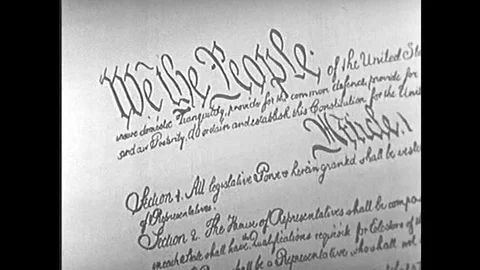 We the People. of the United Sta
insure domestic Tranquility, provide for the common defence, provide for
and our Posterity, do ordain and establish this Constitution for the Unit
Article. I
Section 1. All legislative Powers herein granted shall be vested
of Representatives.
Section 2. The House of Representatives shall be compo
each State shall have the Qualifications requisite for Electors of
shall be a Representative who shall not